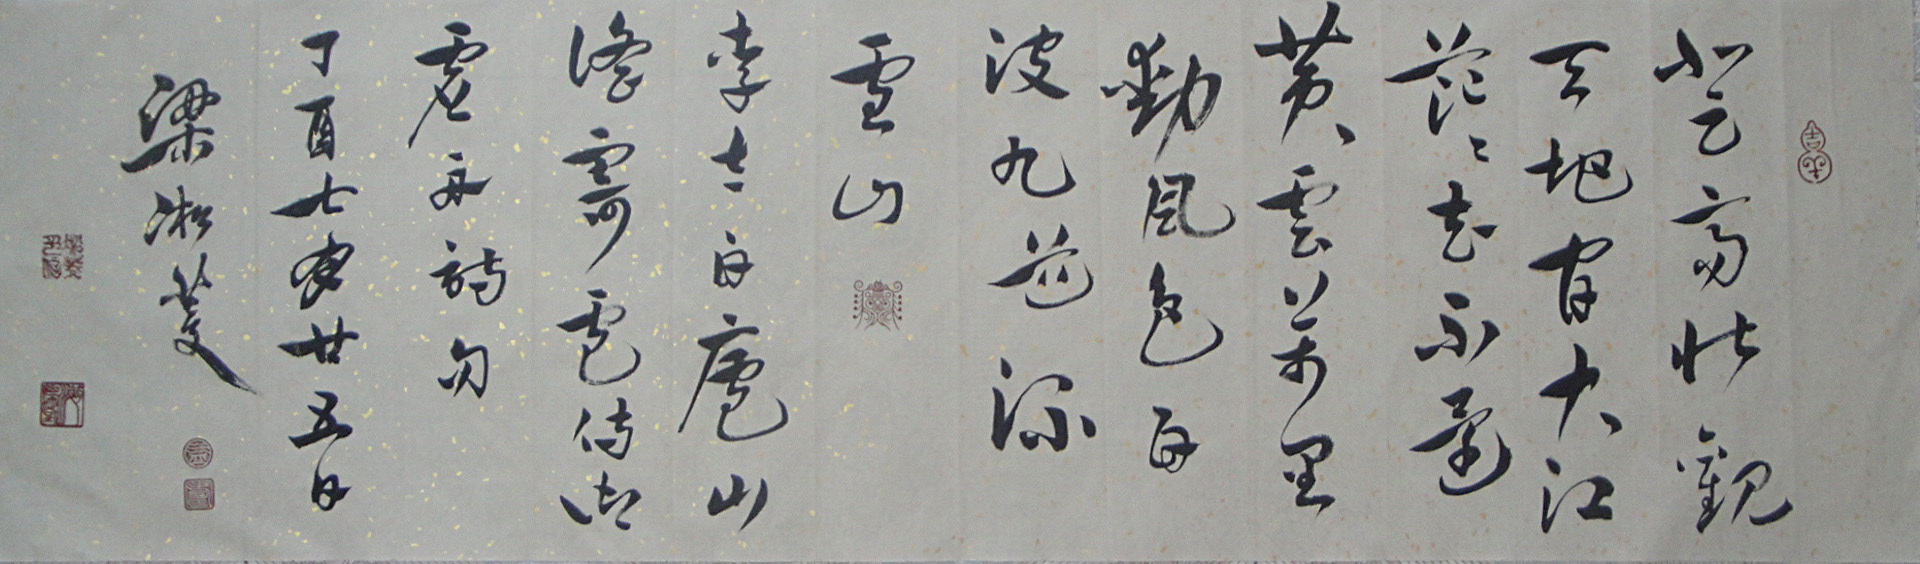 登高壮觀
天地间大江
茫茫去不還
黄雲萬里
動風色白
波九道流
雪山
李太白廬山
謠寄盧侍御
虚舟詩句
丁酉七廿五日
梁淞